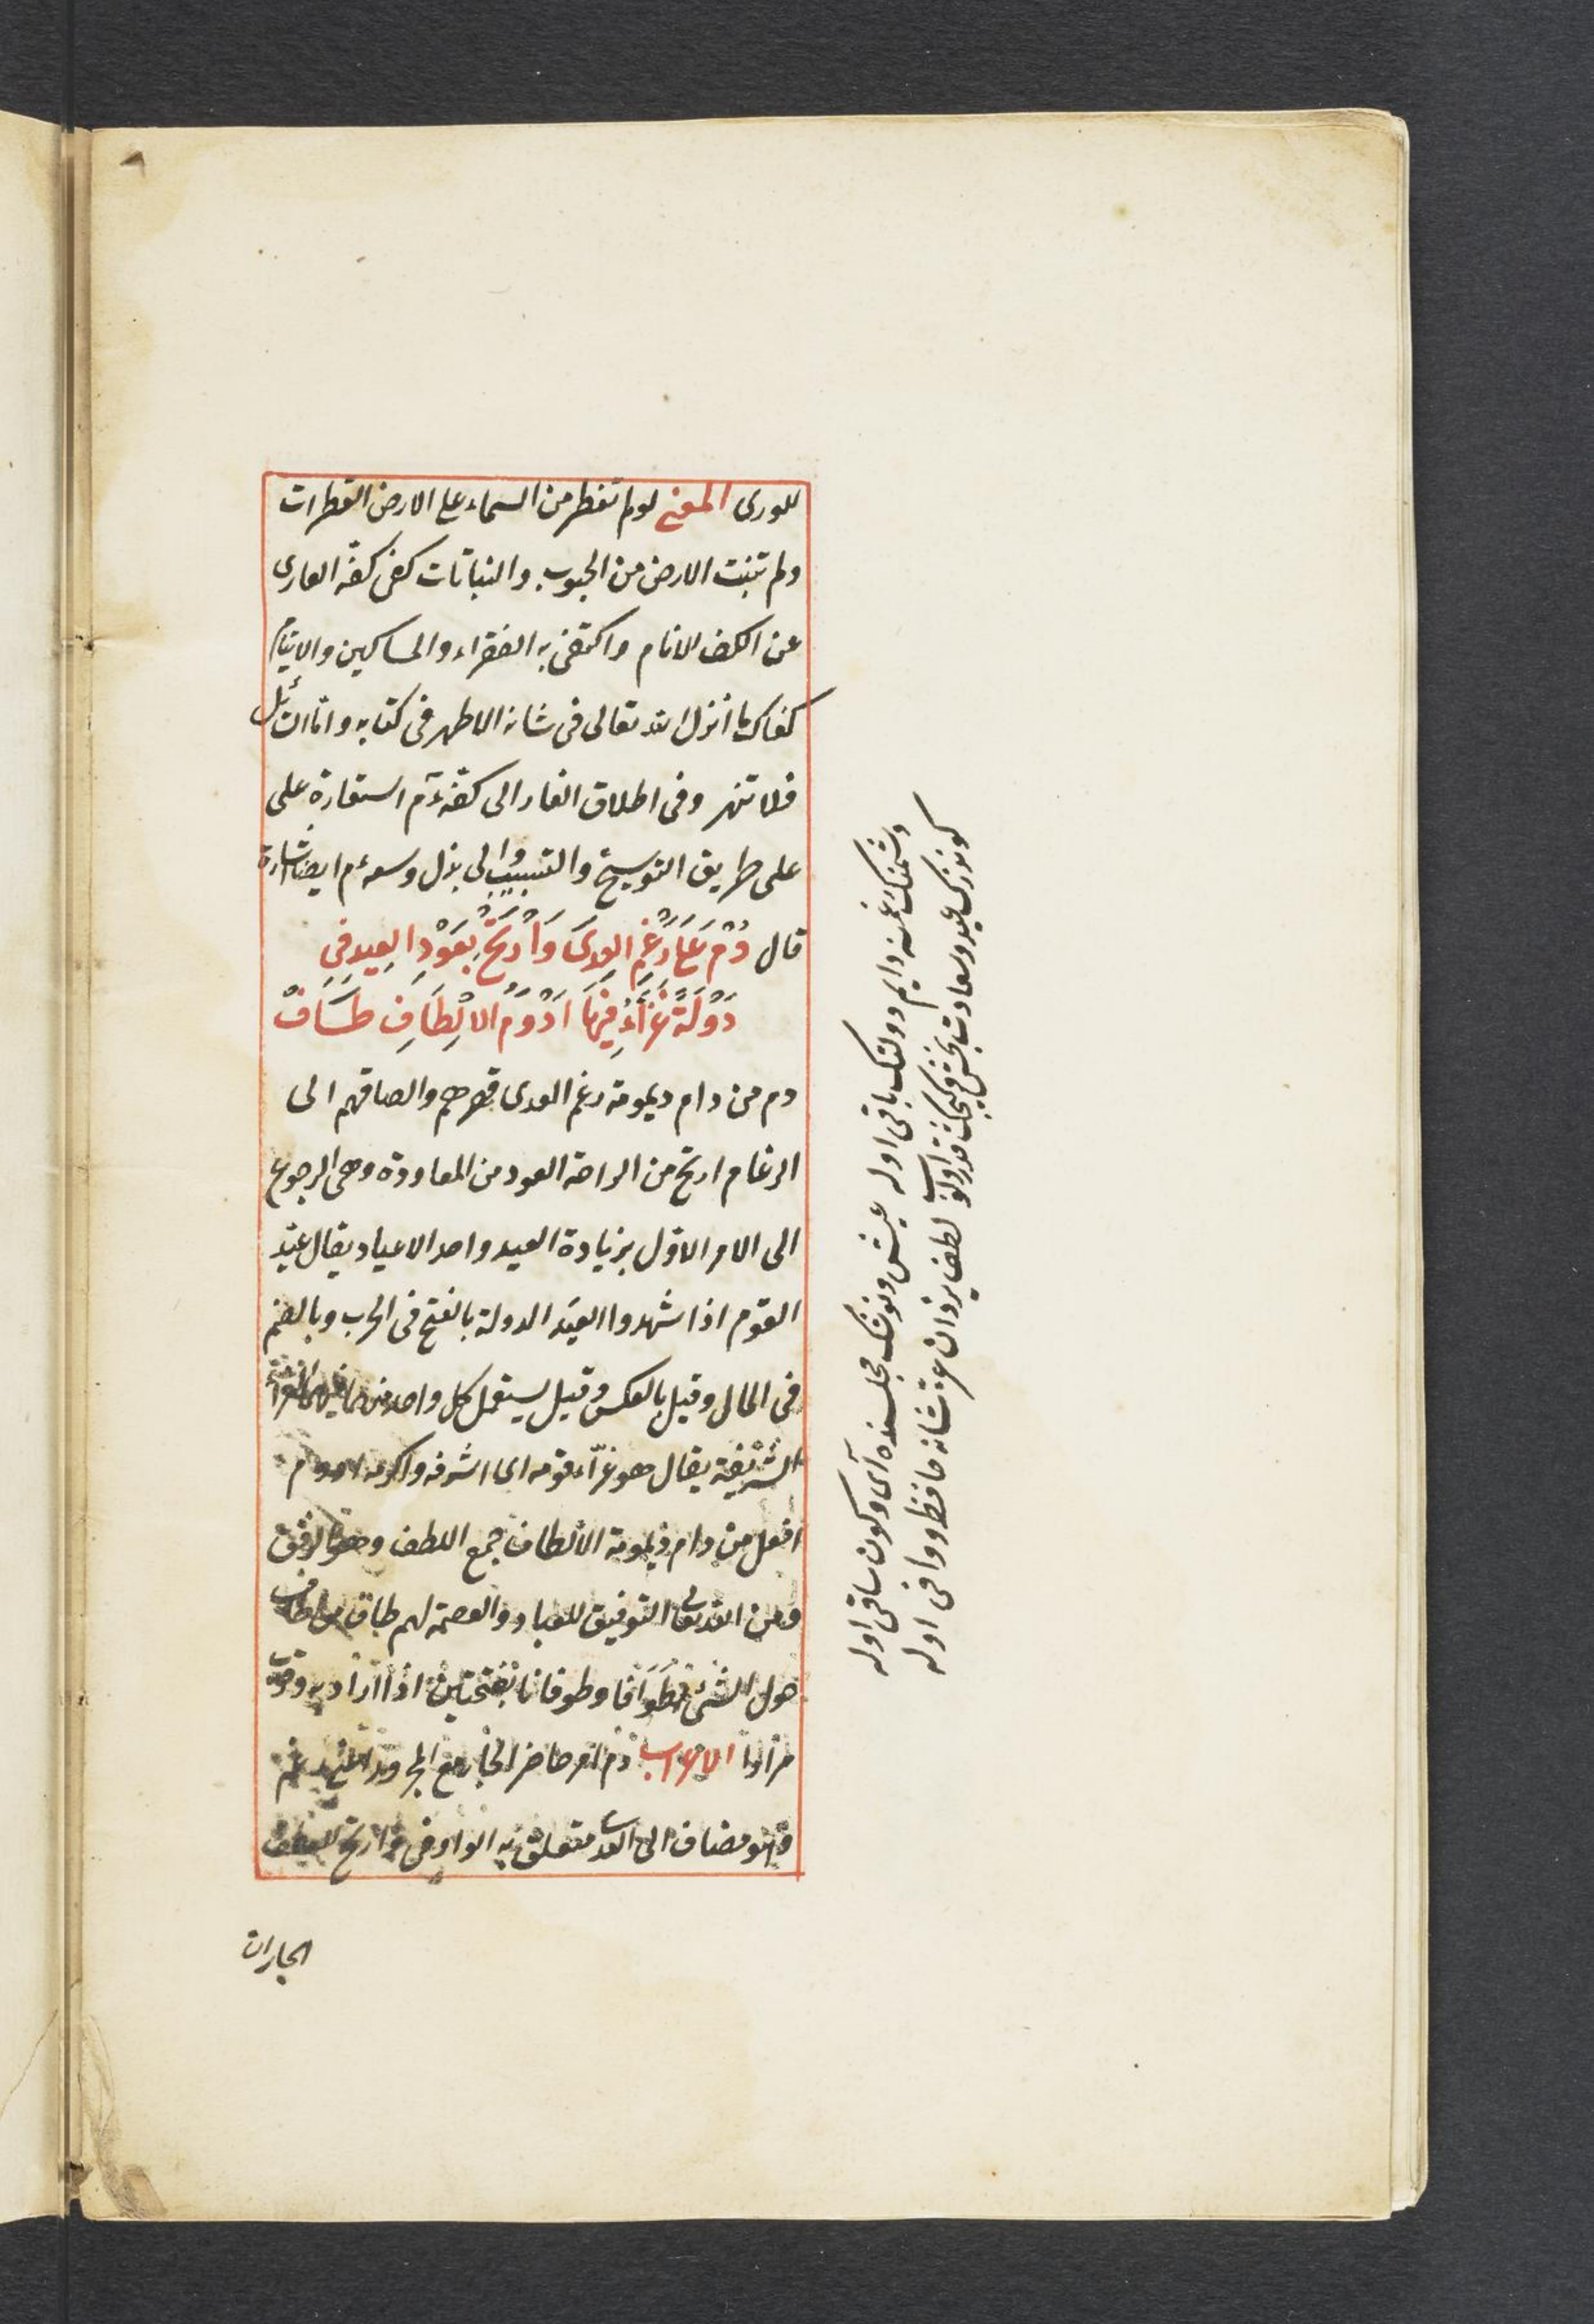 للورى المعنى لو لم تقطر من السماء على الارض القطرات
ولم تنبت الارض من الحبوب والنباتات كفى كفّه العارى
عن الكف الانام واكتفى به الفقراء والمساكين والايتام
كفاك ما انزل الله تعالى فى شانه الاطهر فى كتابه واما السائل
فلا تنهر وفى اطلاق الغار الى كفّه ءم استعارة على
على طريق التوسيخ والتسبيب والى بذل وسعه ءم ايضا اشارة
قال دُمْ عَلَى رَغْمِ العِدَى وَارْتَحْ بِعَوْدِ العِيدِ فِى
دَوْلَةٍ غَرَّاءَ فِيهَا اَدْوَمُ الاَلْطَافِ طَافْ
دم من دام ديمومة رغم العدى قهرهم والصاقهم الى
الرغام ارتح من الراحة العود من المعاودة وهى الرجوع
الى الامر الاول بزيادة العيد واحد الاعياد يقال عيّد
القوم اذا شهدوا العيد الدولة بالفتح فى الحرب وبالضم
فى المال وقيل بالعكس وقيل يستعمل كل واحد منهما فيهما الغراء
الشريفة يقال هو غرّاء قومه اى اشرفه واكرمه ادوم
افعل من دام ديمومة الالطاف جمع اللطف وهو الرفق
ومن الله تعالى التوفيق للعباد والعصمة لهم طاف من اطاف
حول الشئ طَوَافا وطوفانا بفتحتين اذا دار به وقرب
مرارا الاعراب دم امر حاضر الجار مع المجرور اعنى برغم
وهو مضاف الى العدى متعلق به الواو فى وارتح للعطف
الجاران
دشمنك غمنه دايم دولتك باقى اوله عيش ونوشك مجلسنده آى وكون ساقى اوله
كوندزك عيد وسعادت بخش وكيجك قدر اولوب لطف يزدان عزّ شانه حافظ وواقى اوله